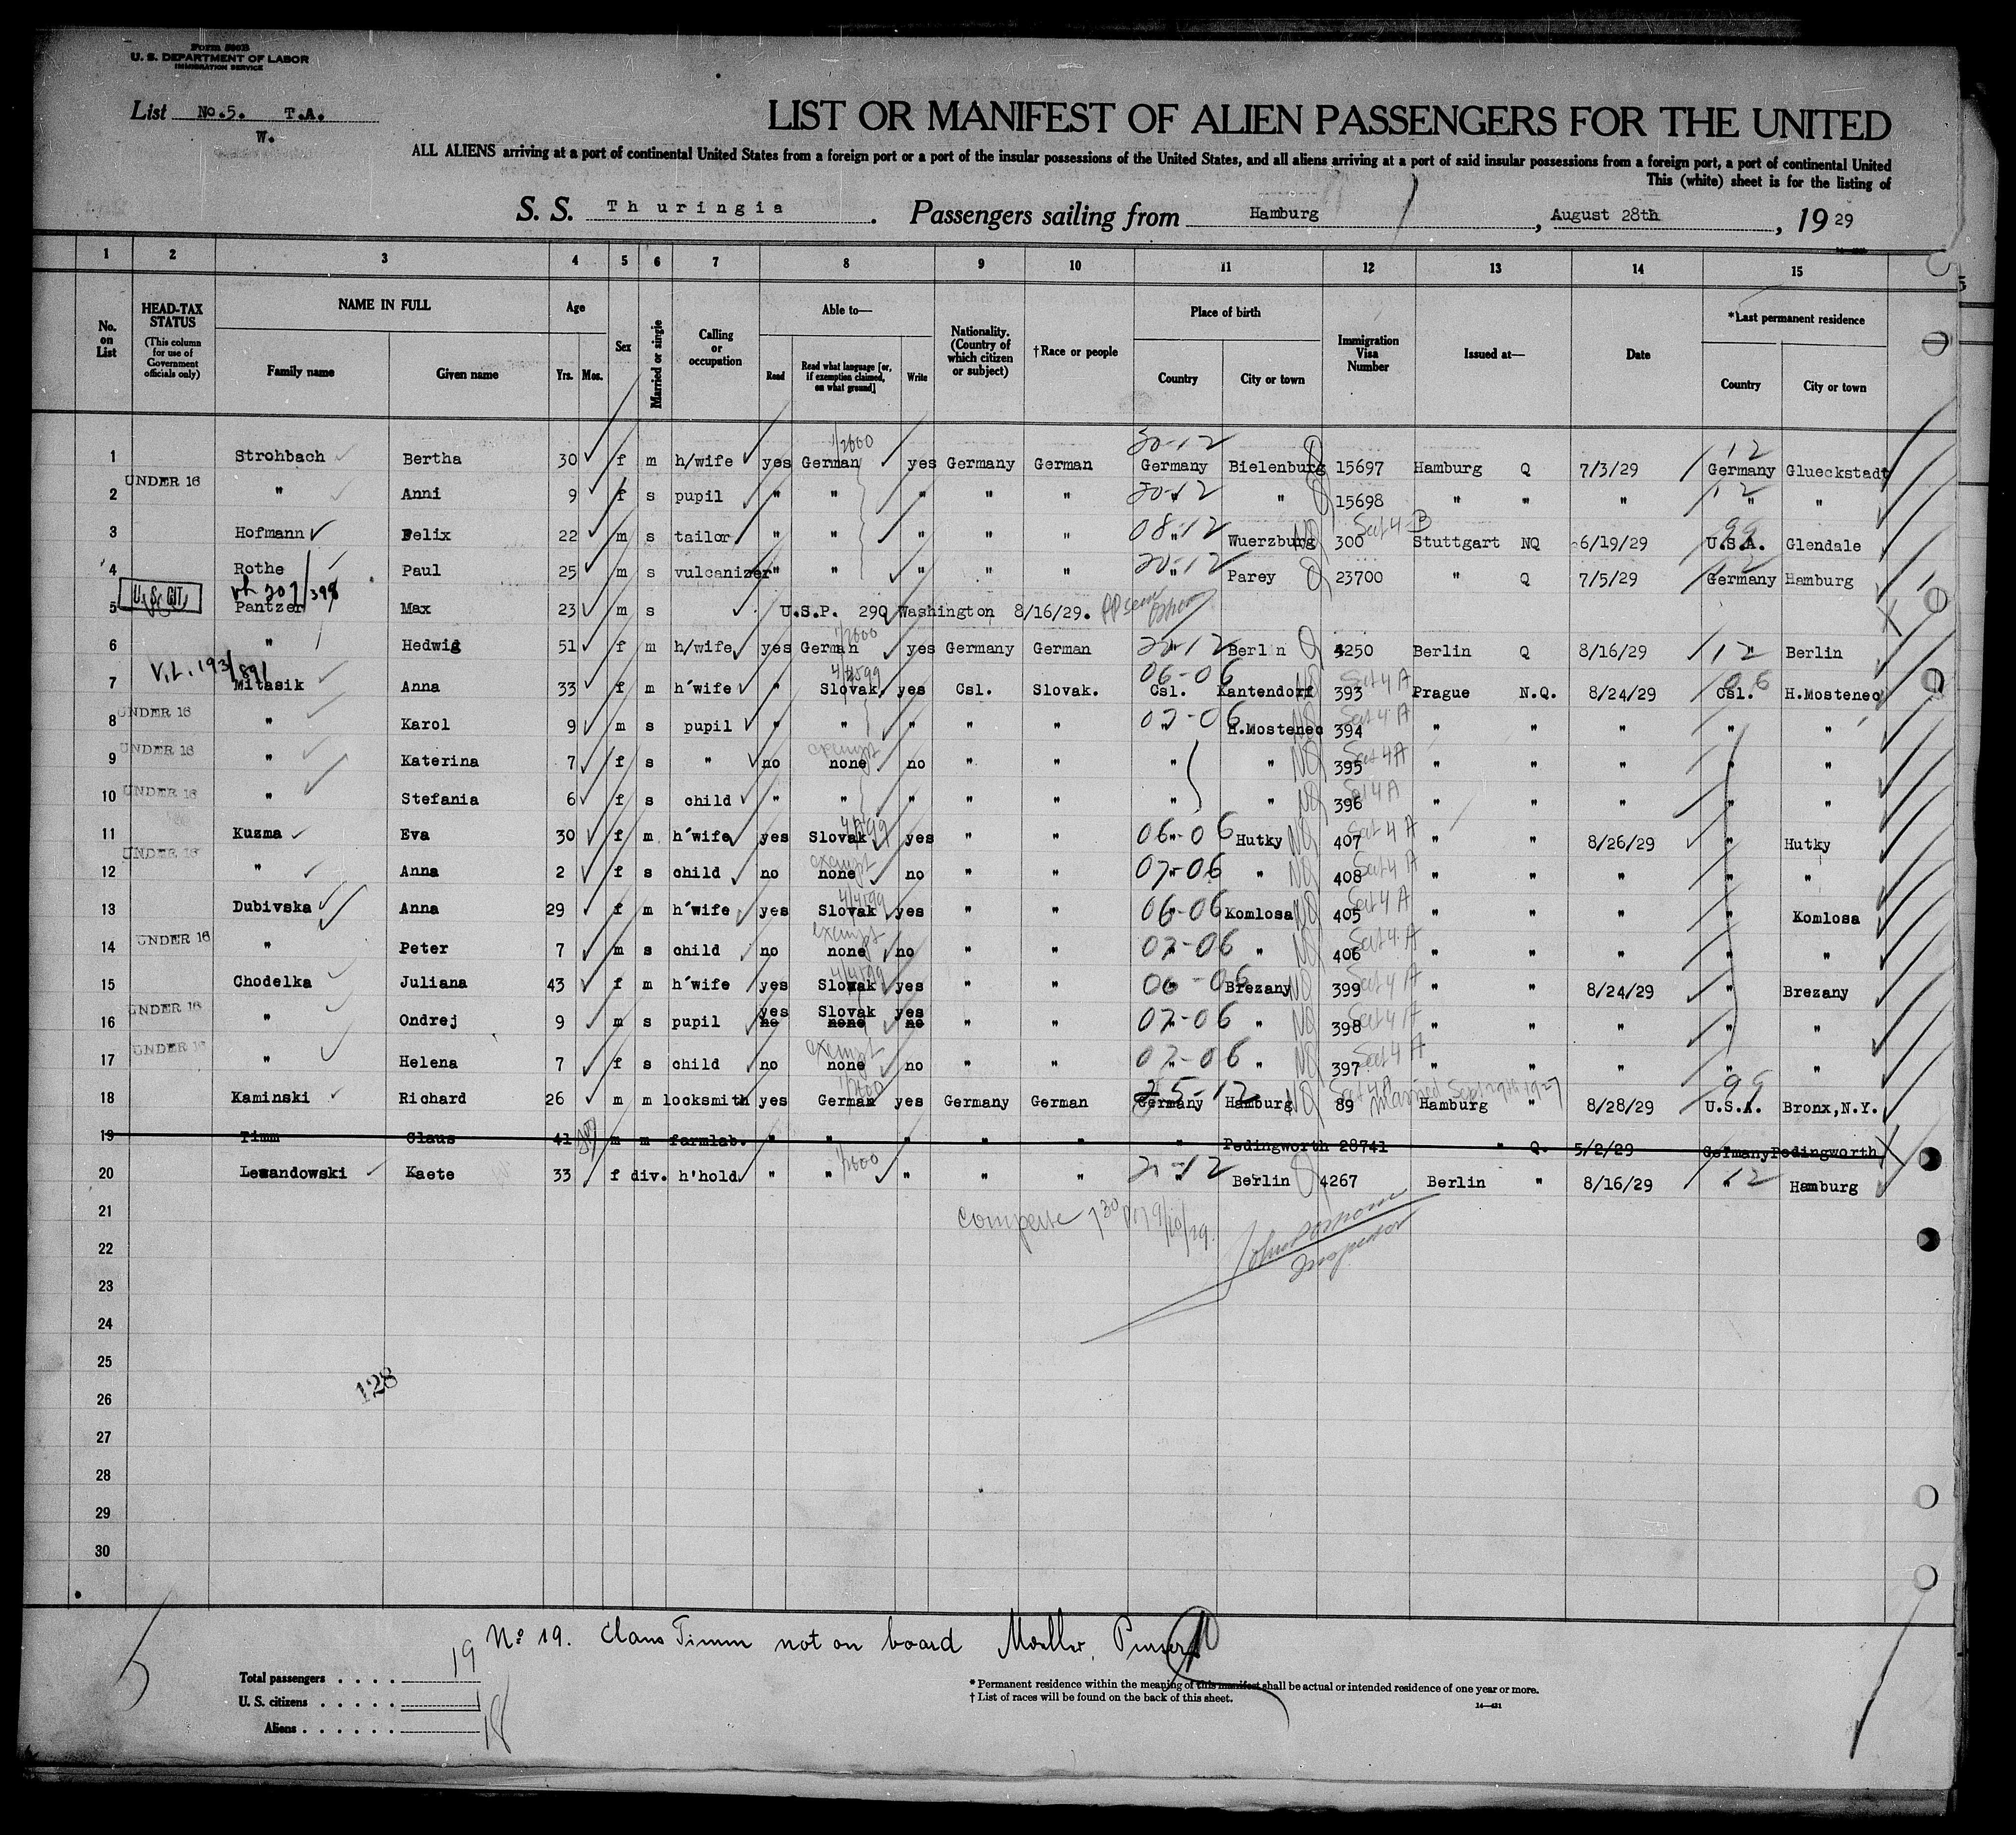 Form 500B
U. S. DEPARTMENT OF LABOR
IMMIGRATION SERVICE
List No.5. T.A.
W.
LIST OR MANIFEST OF ALIEN PASSENGERS FOR THE UNITED
ALL ALIENS arriving at a port of continental United States from a foreign port or a port of the insular possessions of the United States, and all aliens arriving at a port of said insular possessions from a foreign port, a port of continental United
This (white) sheet is for the listing of
S. S. Thuringia. Passengers sailing from Hamburg, August 28th, 1929
1 2 3 4 5 6 7 8 9 10 11 12 13 14 15
No. on List
HEAD-TAX STATUS (This column for use of Government officials only)
NAME IN FULL Family name Given name
Age Yrs. Mos.
Sex
Married or single
Calling or occupation
Able to— Read Read what language [or, if exemption claimed, on what ground] Write
Nationality. (Country of which citizen or subject)
†Race or people
Place of birth Country City or town
Immigration Visa Number
Issued at—
Date
*Last permanent residence Country City or town
1 Strohbach Bertha 30 f m h/wife yes German 1/2600 yes Germany German 20-12 Germany Bielenburg 15697 Hamburg Q 7/3/29 12 Germany Glueckstadt
2 UNDER 16 " Anni 9 f s pupil " " " " " 20-12 " " 15698 " " " 12 " "
3 Hofmann Felix 22 m s tailor " " " " " 08-12 " Wuerzburg NQ 300 Sect 4 B Stuttgart NQ 6/19/29 99 U.S.A. Glendale
4 Rothe Paul 25 m s vulcanizer " " " " " 20-12 " Parey Q 23700 " Q 7/5/29 12 Germany Hamburg
5 U.S. CIT. Pantzer Max 23 m s U.S.P. 290 Washington 8/16/29.
6 " Hedwig 51 f m h/wife yes German 1/2600 yes Germany German 22-12 " Berlin Q 4250 Berlin Q 8/16/29 12 " Berlin
V.L. 193/891
7 Mitasik Anna 33 f m h'wife " Slovak 4/4599 yes Csl. Slovak. 06-06 Csl. Kantendorf NQ 393 Sect 4 A Prague N.Q. 8/24/29 06 Csl. H.Mostenec
8 UNDER 16 " Karol 9 m s pupil " " " " " 07-06 " H.Mostenec NQ 394 Sect 4 A " " " " "
9 UNDER 16 " Katerina 7 f s " no exempt none no " " " " NQ 395 Sect 4 A " " " " "
10 UNDER 16 " Stefania 6 f s child " " " " " " " NQ 396 Sect 4 A " " " " "
11 Kuzma Eva 30 f m h'wife yes Slovak 4/4599 yes " " 06-06 " Hutky NQ 407 Sect 4 A " " 8/26/29 " Hutky
12 UNDER 16 " Anna 2 f s child no exempt none no " " 07-06 " " NQ 408 Sect 4 A " " " " "
13 Dubivska Anna 29 f m h'wife yes Slovak 4/4599 yes " " 06-06 " Komlosa NQ 405 Sect 4 A " " " " Komlosa
14 UNDER 16 " Peter 7 m s child no exempt none no " " 07-06 " " NQ 406 Sect 4 A " " " " "
15 Chodelka Juliana 43 f m h'wife yes Slowak 4/4599 yes " " 06-06 " Brezany NQ 399 Sect 4 A " " 8/24/29 " Brezany
16 UNDER 16 " Ondrej 9 m s pupil yes no Slovak none yes no " " 07-06 " " NQ 398 Sect 4 A " " " " "
17 UNDER 16 " Helena 7 f s child no exempt none no " " 07-06 " " NQ 397 Sect 4 A " " " " "
18 Kaminski Richard 26 m m locksmith yes German 1/2600 yes Germany German 25-12 Germany Hamburg NQ 89 Sect 4 A Married Sept 29th 1927 Hamburg " 8/28/29 99 U.S.A. Bronx,N.Y.
19 Timm Claus 41 m m farmlab. " " " " " " Pedingworth 28741 " Q. 5/2/29 Germany Pedingworth
20 Lewandowski Kaete 33 f div. h'hold " " 1/2600 " " " 21-12 " Berlin Q 4267 Berlin " 8/16/29 12 " Hamburg
21
22
23
24
25
26
27
28
29
30
9/10/29.
Inspector
128
No 19. Claus Timm not on board Moeller, Purser
Total passengers . . . . 19
U. S. citizens . . . . . 1
Aliens . . . . . . 18
* Permanent residence within the meaning of this manifest shall be actual or intended residence of one year or more.
† List of races will be found on the back of this sheet.
14—431